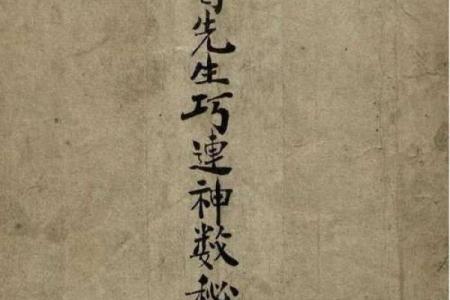 先生巧連神数秘